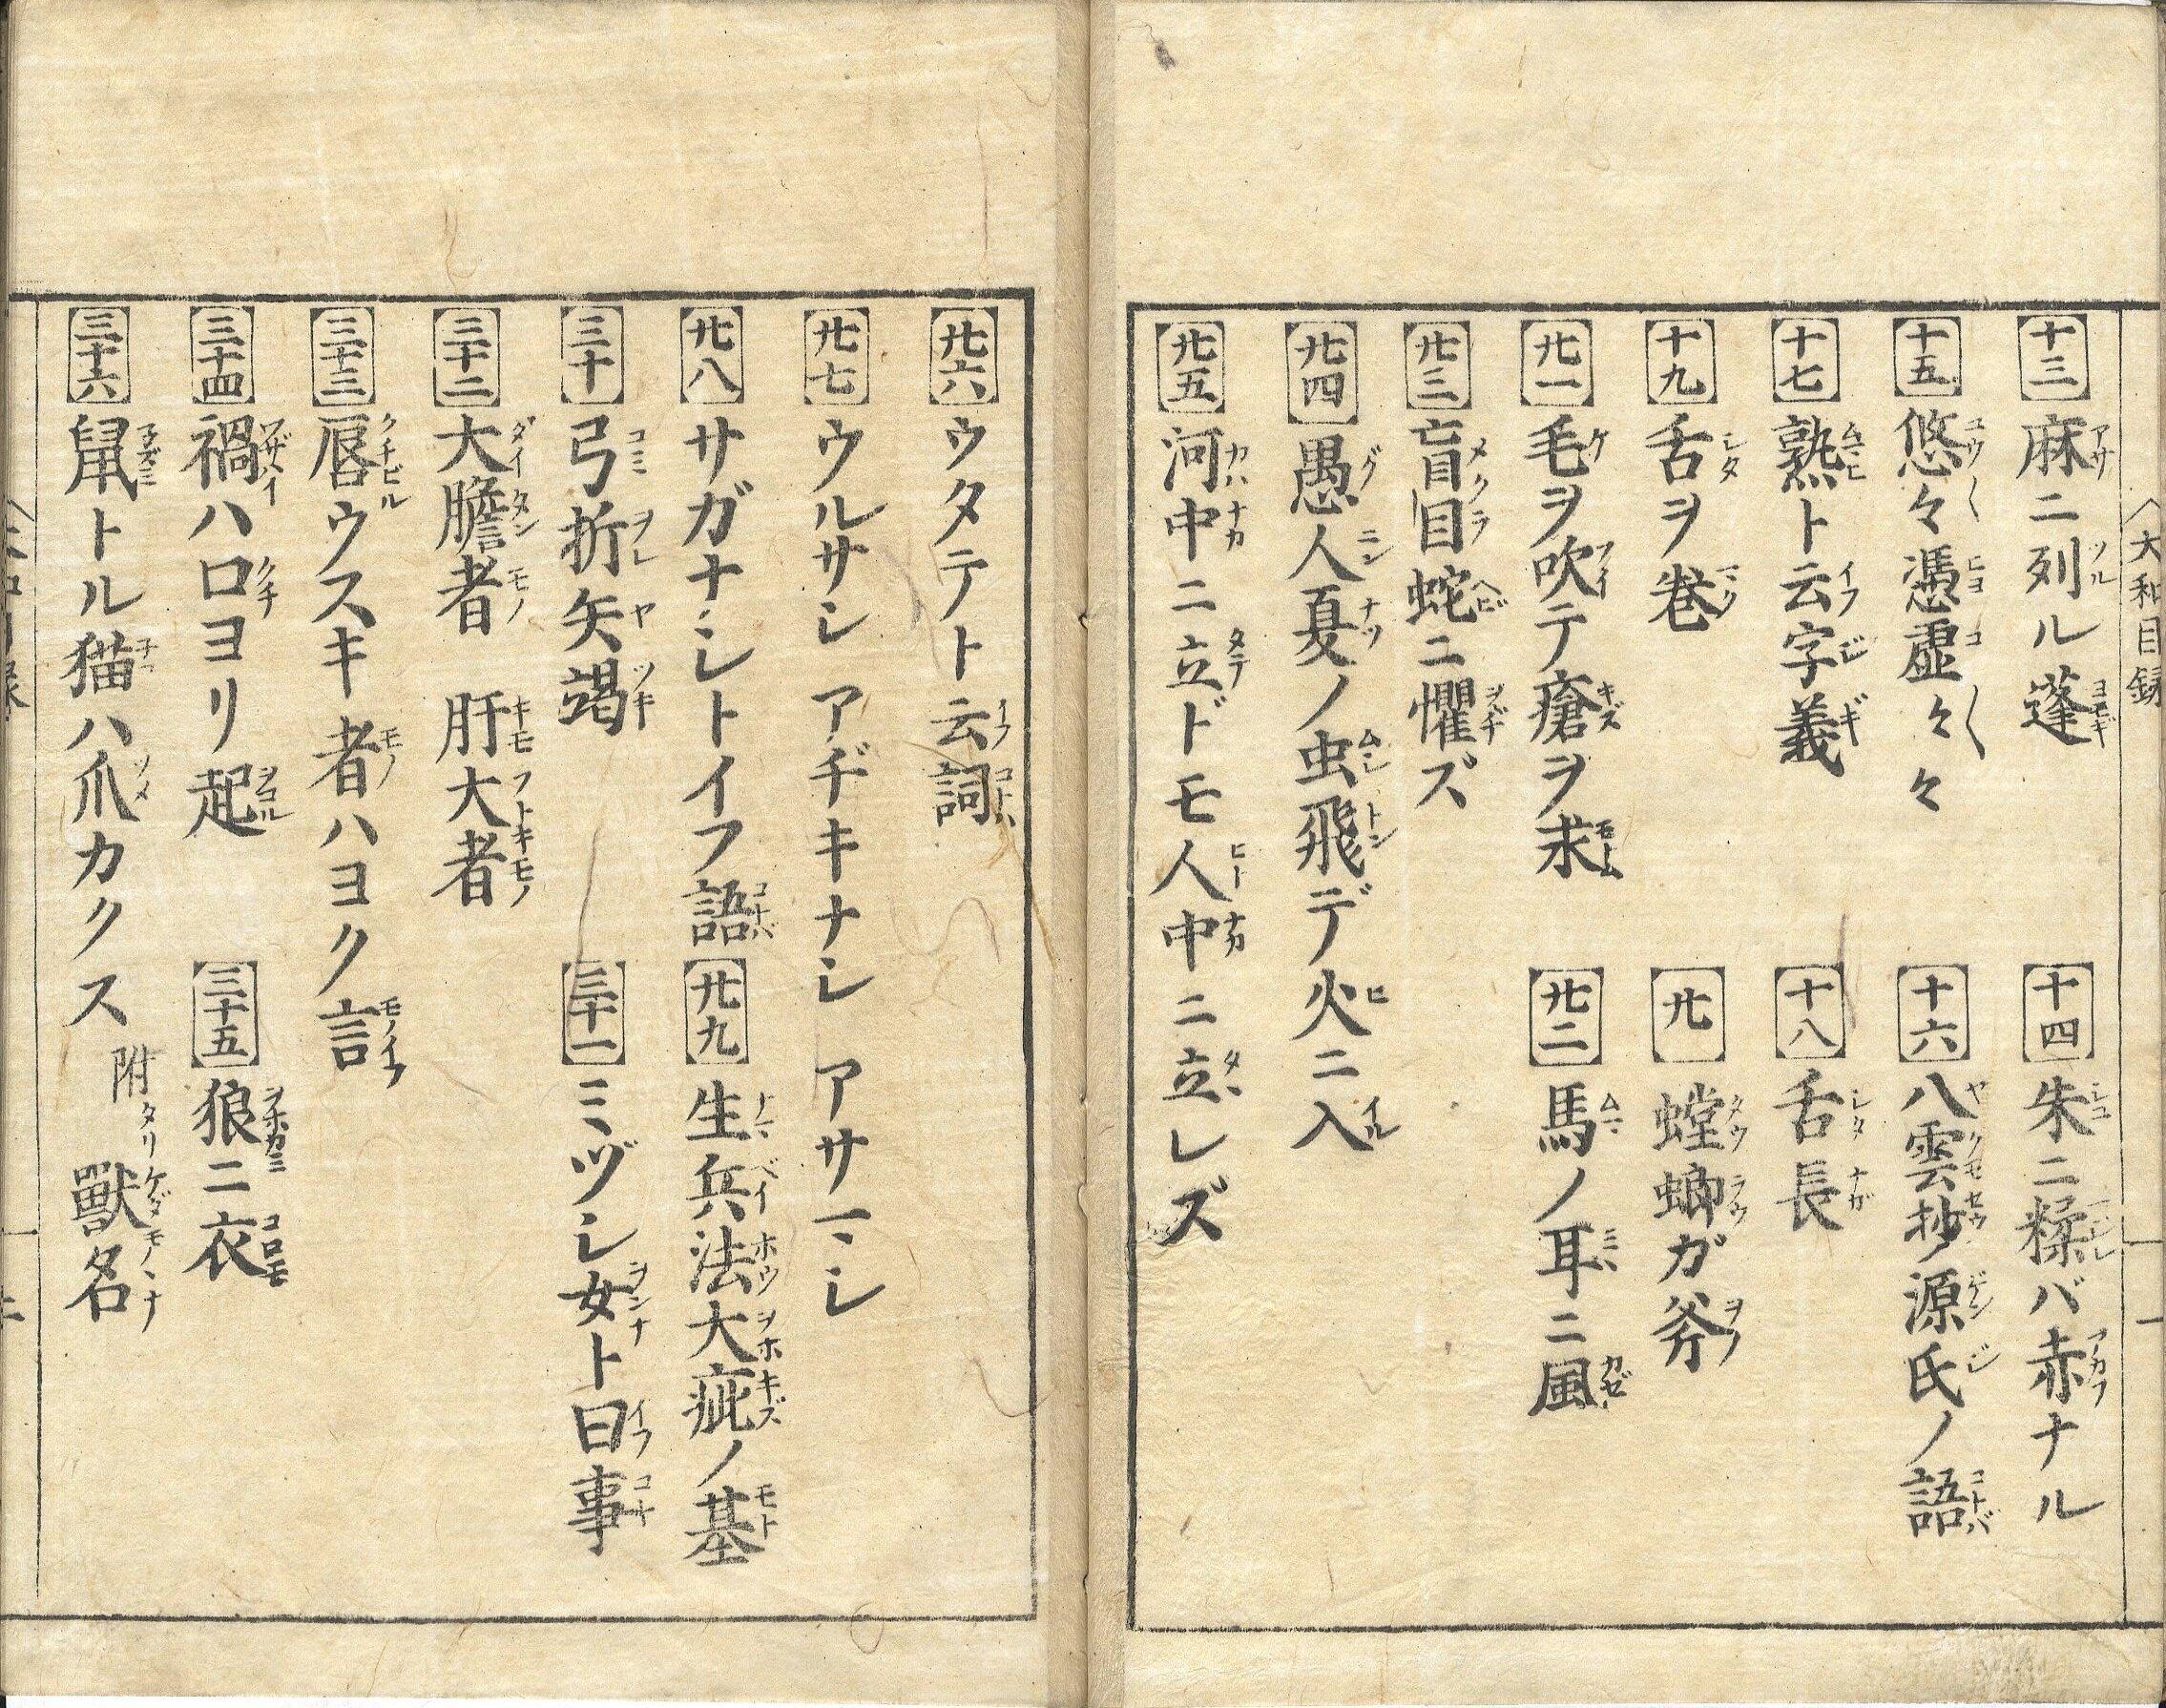 大和目録
十三 麻ニ列ル蓬
十四 朱ニ糅バ赤ナル
十五 悠々憑虚々々
十六 八雲抄ノ源氏ノ語
十七 熟ト云字義
十八 舌長
十九 舌ヲ巻
廿 螳螂ガ斧
廿一 毛ヲ吹テ瘡ヲ求
廿二 馬ノ耳ニ風
廿三 盲目蛇ニ懼ズ
廿四 愚人夏ノ虫飛デ火ニ入
廿五 河中ニ立ドモ人中ニ立レズ
廿六 ウタテト云詞
廿七 ウルサシ アヂキナシ アサマシ
廿八 サガナシトイフ語
廿九 生兵法大疵ノ基
三十 弓折矢竭
三十一 ミヅシ女ト曰事
三十二 大膽者 肝大者
三十三 唇ウスキ者ハヨク言
三十四 禍ハ口ヨリ起
三十五 狼ニ衣
三十六 鼠トル猫ハ爪カクス 附タリ 獸名